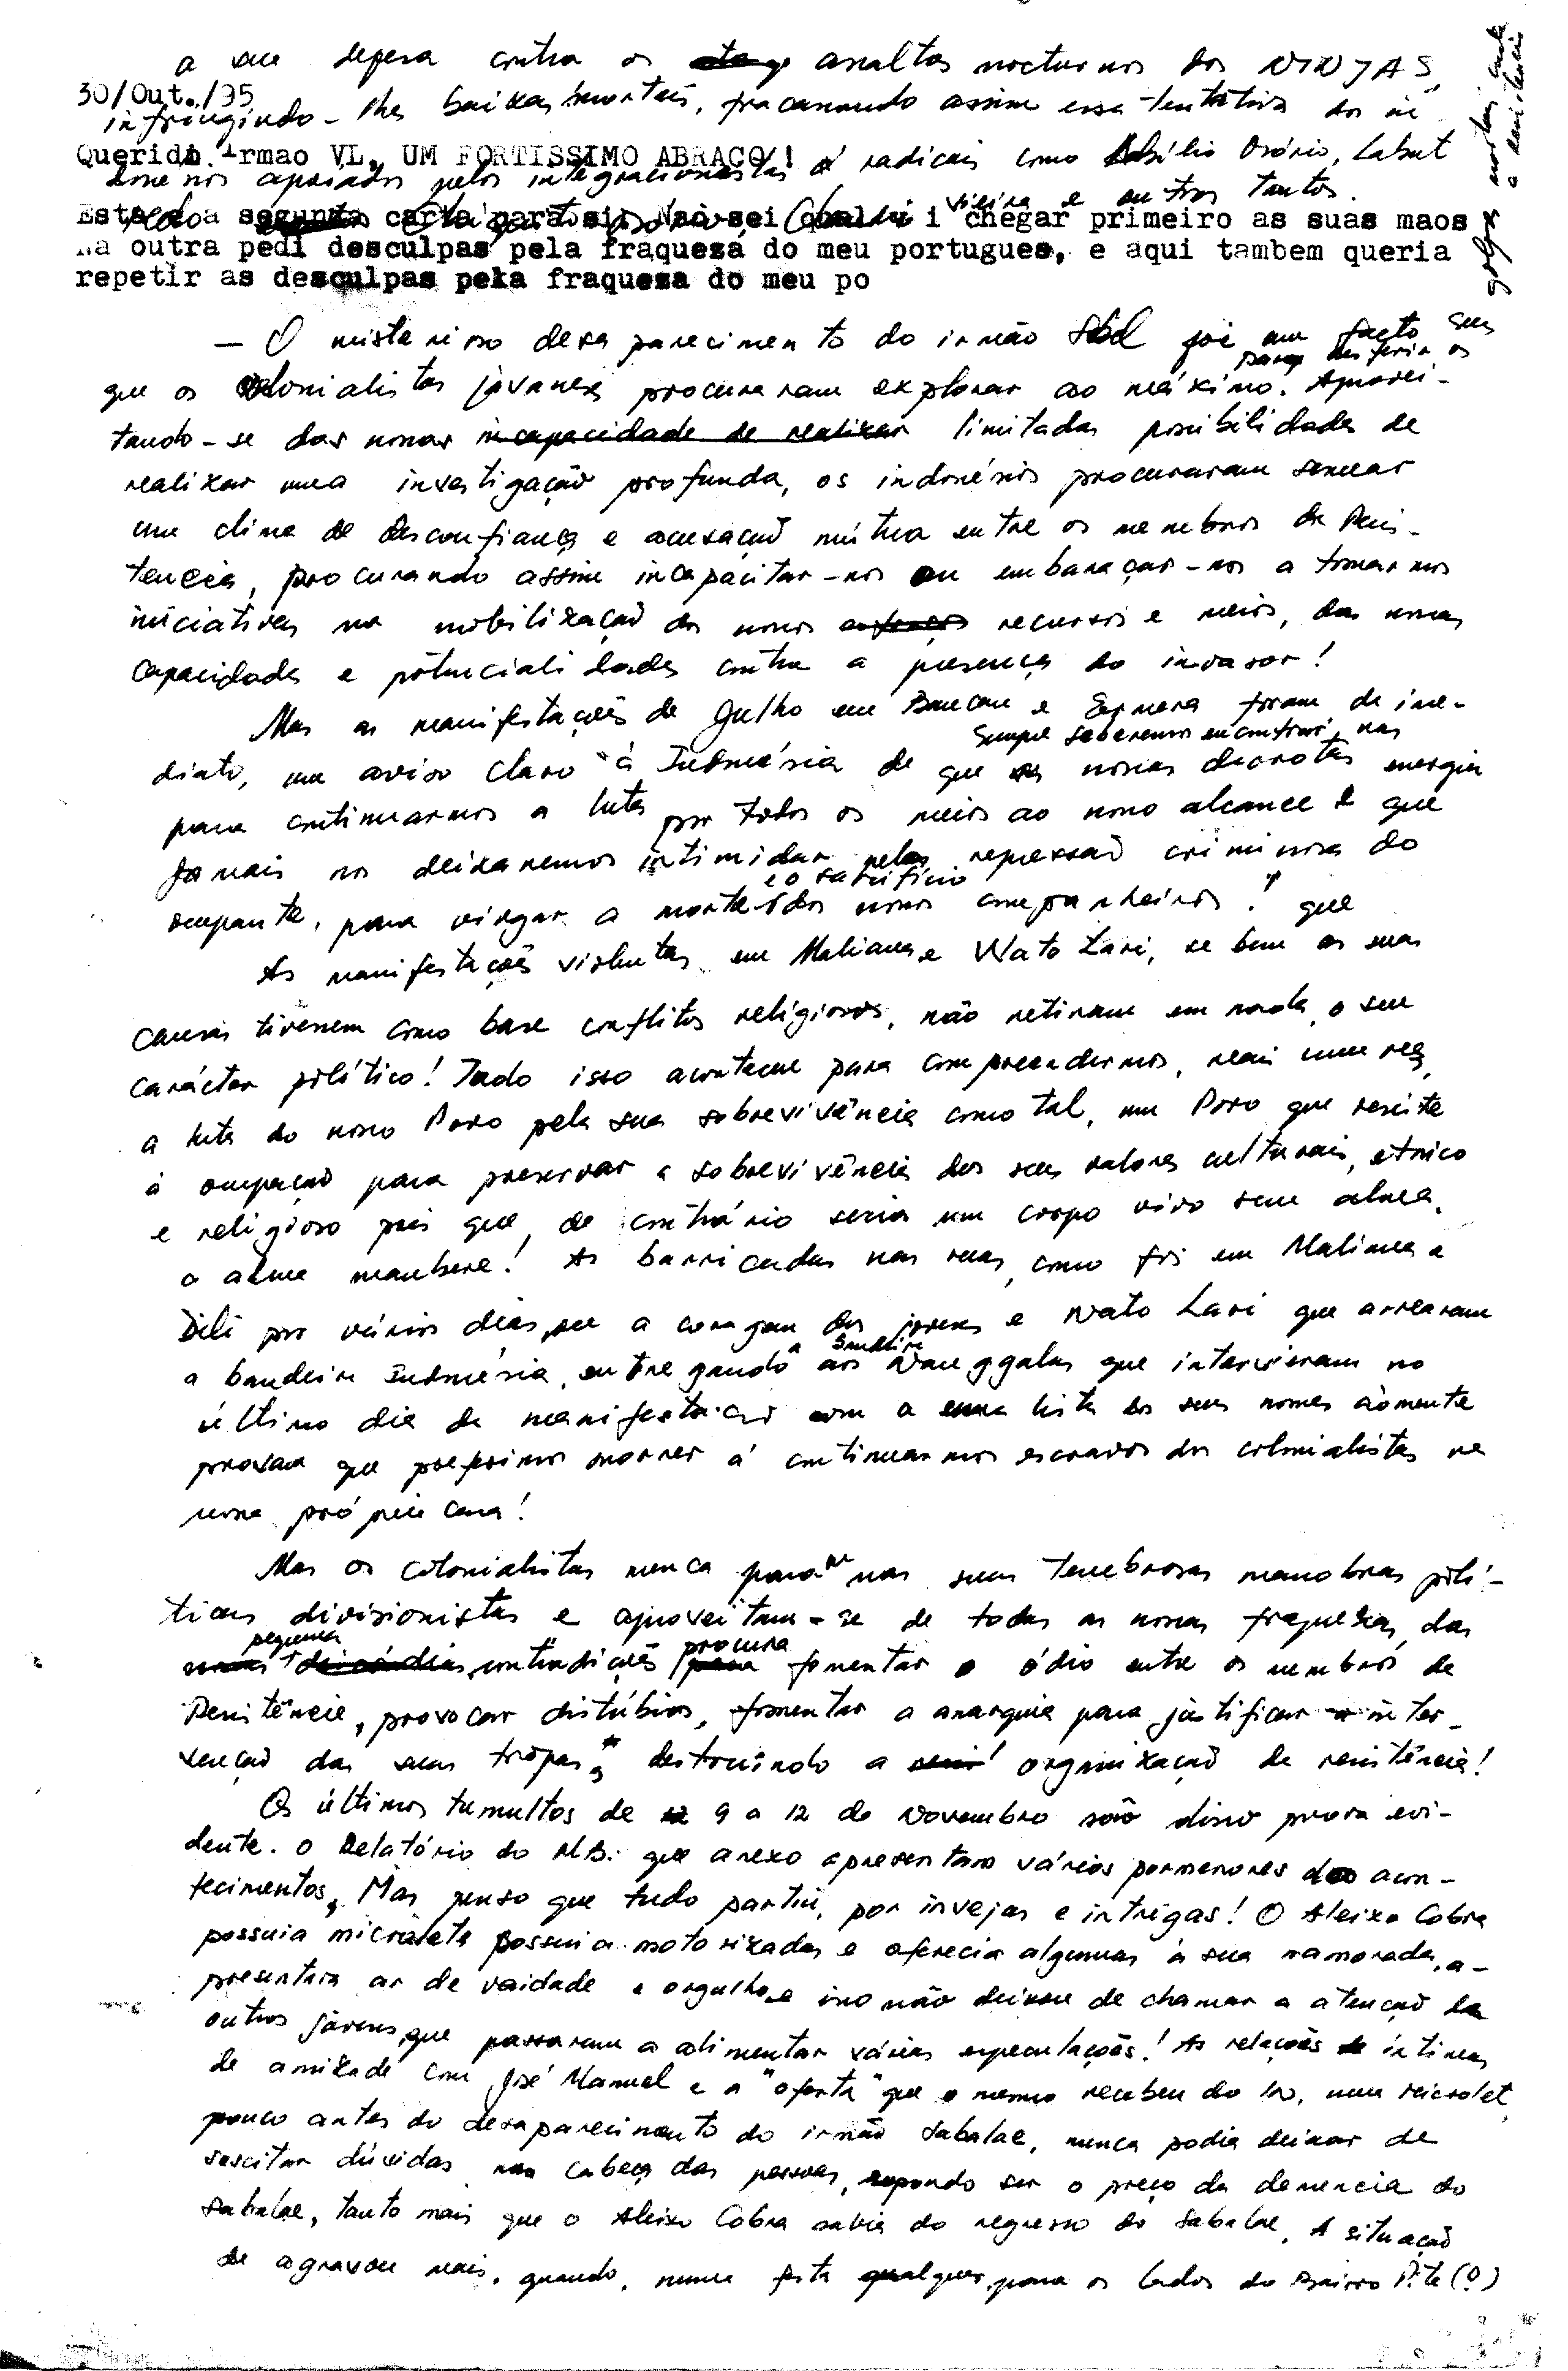 a sua defesa contra os assaltos nocturnos dos NINJAS,
30/Out./95
infringindo-lhes baixas mortais, fracassando assim essa tentativa dos in
Querido Irmao VL, UM FORTISSIMO ABRACO!
donésios apoiados pelos integracionistas radicais como Abílio Osório, Labut
Melo vieira e outros tantos.
Esta é a segunda carta para si. Nao sei qual i chegar primeiro as suas maos
na outra pedi desculpas pela fraqueza do meu portugues, e aqui tambem queria
repetir as desculpas pela fraqueza do meu po
golpes mortais
a resistência
— O misterioso desaparecimento do irmão Sbl foi um facto
para desferir os seus
que os colonialistas javaneses procuraram explorar ao máximo. Aprovei-
tando-se das nossas incapacidade de realizar limitadas possibilidades de
realizar uma investigação profunda, os indonésios procuraram semear
um clima de desconfiança e acusação mútua entre os membros da Resis-
tencia, procurando assim incapacitar-nos ou embaraçar-nos a tomarmos
iniciativas na mobilização dos nossos recursos e meios, das nossas
capacidades e potencialidades contra a presença do invasor!
Mas as manifestações de Julho em Baucau e Ermera foram de ime-
sempre saberemos encontrar, nas
diato, um aviso claro à Indonésia de que nossas derrotas energia
para continuarmos a luta por todos os meios ao nosso alcance e que
jamais nos deixaremos intimidar pela repressão criminosa do
e o sacrifício
ocupante, para vingar a morte dos nossos companheiros!
As manifestações violentas em Maliana e Wato Lari, se bem que as suas
causas tivessem como base conflitos religiosos, não retiram em nada o seu
carácter político! Tudo isso acontece para compreendermos, mais uma vez,
a luta do nosso Povo pela sua sobrevivência como tal, um Povo que resiste
à ocupação para preservar a sobrevivência dos seus valores culturais, etnico
e religioso pois que, de contrário seria um corpo vivo sem alma,
a alma maubere! As barricadas nas ruas, como foi em Maliana e
Dili por vários dias, ou a coragem dos jovens e Wato Lari que arrearam
a bandeira
a bandeira Indonésia, entregando aos Nanggalas que intervieram no
último dia da manifestação com a lista dos seus nomes sòmente
provam que preferimos morrer á continuarmos escravos dos colonialistas na
nossa própria casa!
Mas os colonialistas nunca param nas suas tenebrosas manobras polí-
ticas divisionistas e aproveitam-se de todas as nossas fraquezas, das
pequenas procura
nossas contradições para fomentar o ódio entre os membros da
Resistência, provocar distúbios, fomentar a anarquia para justificar a inter-
venção das suas tropas, destruindo a organização da resistência!
Os últimos tumultos de 9 a 12 de Novembro são disso prova evi-
dente. O Relatório do M.B. que anexo apresentam vários pormenores do acon-
tecimentos. Mas penso que tudo partiu, por invejas e intrigas! O Aleixo Cobra
possuia microlete possuia motorizadas e oferecia algumas à sua namorada, a-
presentava ar de vaidade e orgulho, e isso não deixou de chamar a atenção de
outros jóvens, que passaram a alimentar várias especulações! As relações íntimas
de amizade com José Manuel e a "oferta" que o mesmo recebeu do uma microlet,
pouco antes do desaparecimento do irmão Sabalae, nunca podia deixar de
suscitar dúvidas na cabeça das pessoas, supondo ser o preço da denuncia do
Sabalae, tanto mais que o Aleixo Cobra sabia do regresso do Sabalae. A situação
se agravou mais, quando, numa festa qualquer, para os lados do Bairro Pite (?)